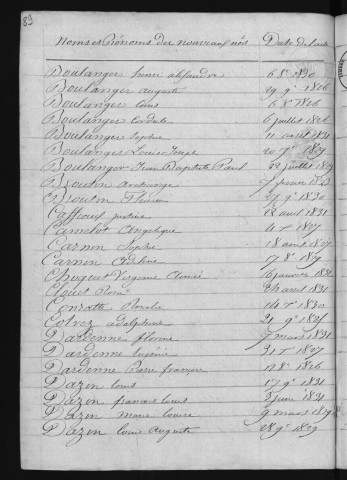 89
Noms et Prénoms des nouveaux nés Date de l'acte
Boulanger henri alexandre 6 8e 1830
Boulanger auguste 29 9e 1806
Boulanger louis 6 8e 1806
Boulanger Cordule 6 juillet 1806
Boulanger Sophie 11 avril 1831
Boulanger Louis Joseph 20 7e 1809
Boulanger Jean Baptiste Paul 22 juillet 1809
Boutin
Boutin 27 9e 1830
Caffiaux justine 22 avril 1831
Camelot Angelique 4 7e 1807
Carnon Sophie 18 août 1807
Carnon Adeline 17 8e 1809
Choquet Virginie Aimée 16 janvier 1831
Clouet Rose 24 avril 1831
Rosalie 14 7e 1830
Cotrez adolphine 21 9e 1805
Dardenne florine 7 mars 1831
Dardenne Eugénie 31 7e 1807
Dardenne Pierre françois 12 8e 1806
Dazin louis 17 9e 1831
Dazin françois louis 5 juin 1831
Dazin marie louise 9 mars 1809
Dazin louis Auguste 28 9e 1809